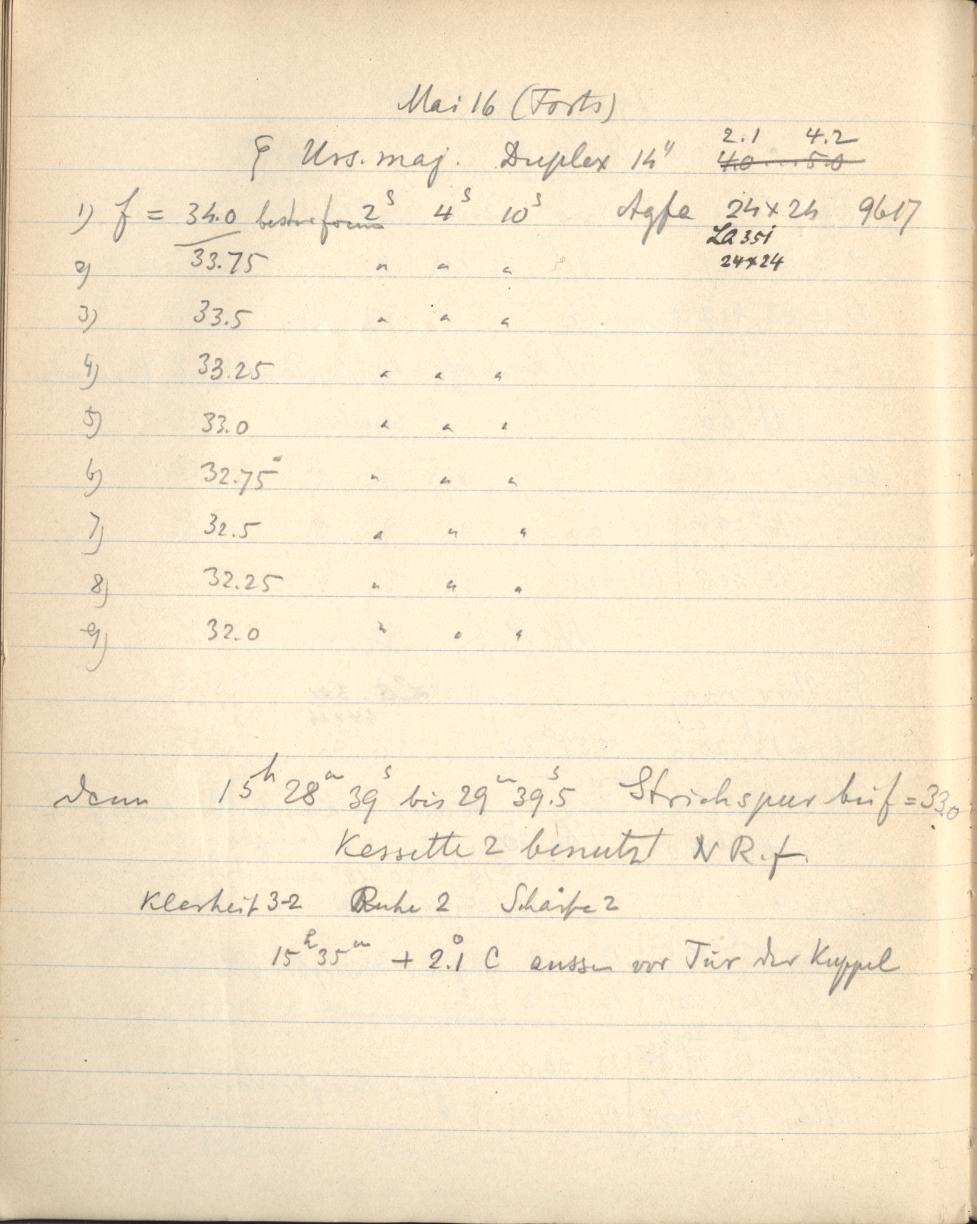 Mai 16 (Forts)
2.1 4.2
ξ Urs. maj. Duplex 14" 4.0 .... 5.0
1) f = 34.0 bester focus 2s 4s 10s Agfa 24x24 9617
La 351
2) 33.75 " " " 24x24
3) 33.5 " " "
4) 33.25 " " "
5) 33.0 " " "
6) 32.75 " " "
7) 32.5 " " "
8) 32.25 " " "
9) 32.0 " " "
dann 15h 28m 39s bis 29m 39.5s Strichspur bei f = 33.0
Kassette 2 benutzt N R.f.
Klarheit 3-2 Ruhe 2 Schärfe 2
15h 35m + 2.1° C aussen vor Tür der Kuppel